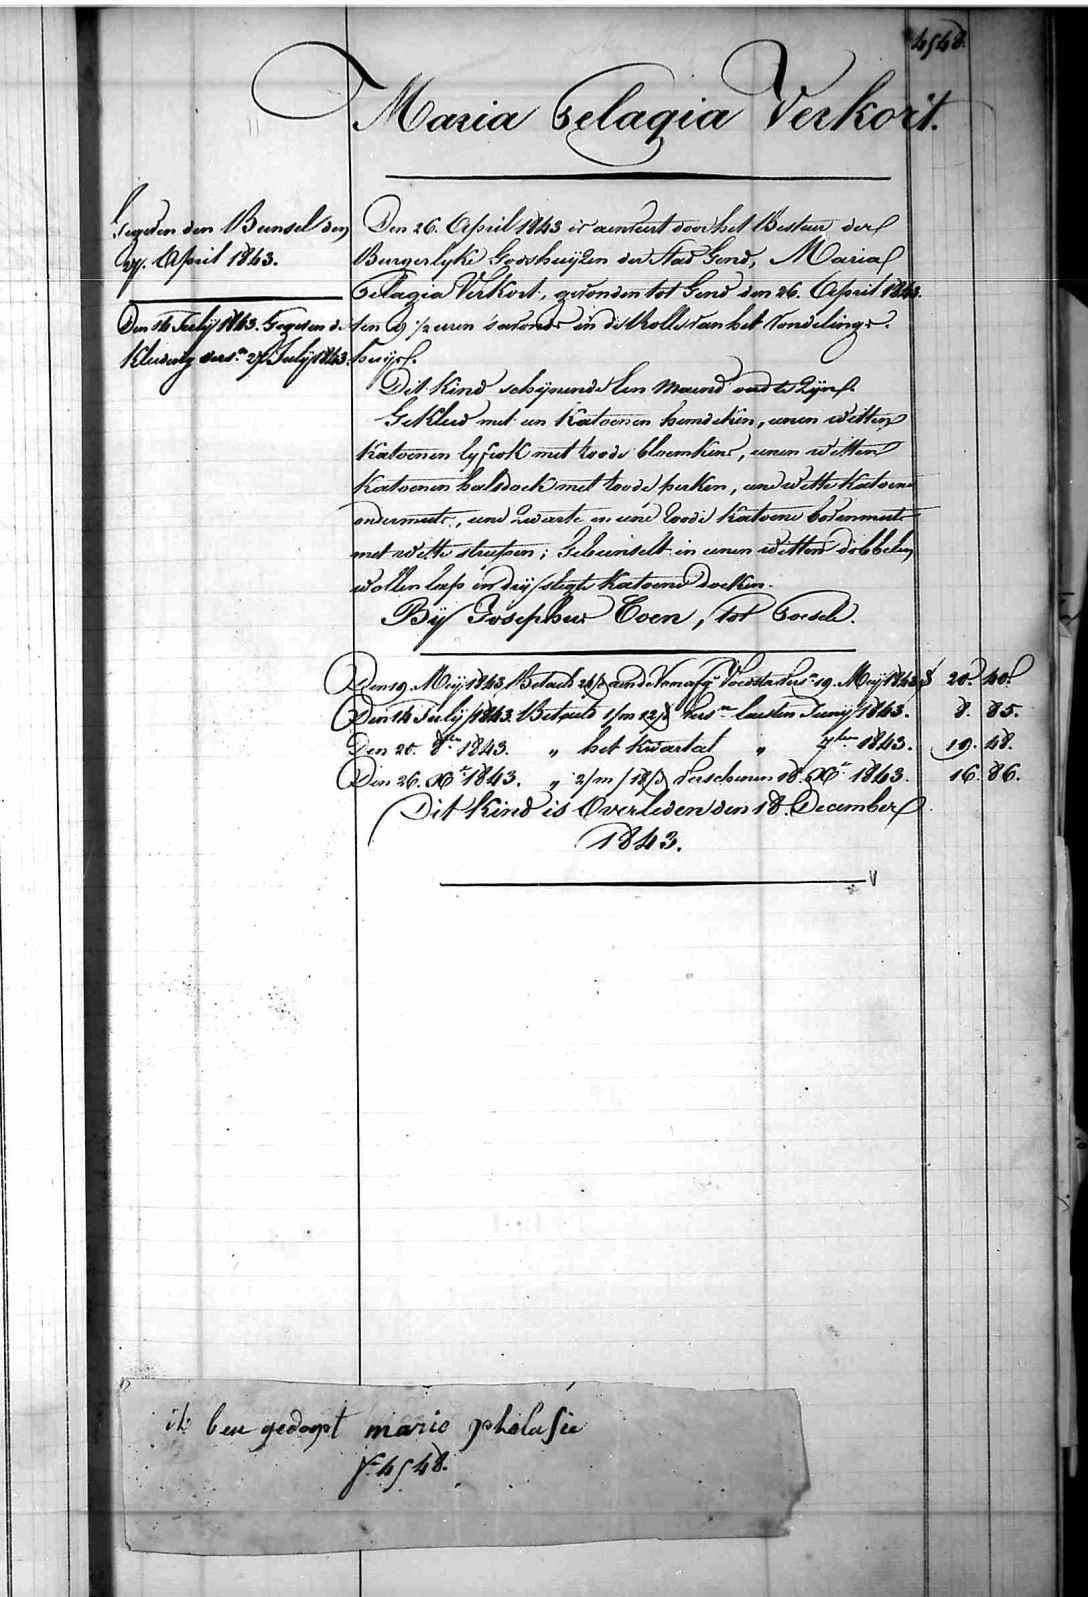 4548.
Maria Pelagia Verkort.
Gegeven den Bunsel den
27. April 1843.
Den 14 July 1843. Gegeven de
Kleeding vers.n 27 July 1843.
Den 26. April 1843 is aenveirt door het Bestuer der
Burgerlyke Godshuyzen der Stad Gend, Maria
Pelagia Verkort, gevonden tot Gend den 26. April 1843.
ten 9 1/2 uren s'avonds in de Rolle van het Vondelings-
huijs.
Dit Kind schijnende Een Maend oud te Zijn.
Gekleed met een Katoenen hemdeken, eenen witten
Katoenen lyfrok met roode bloemkens, eenen witten
Katoenen halsdoek met roode perken, eene witte Katoene
ondermuts, eene Zwarte en eene roode Katoene bovenmuts
met witte streepen; Gebunselt in eenen witten dobbelen
wollen lap en drij slegte Katoene doeken.
Bij Josephus Coen, tot Poesele.
Den 19. Meij 1843, Betaelt 24/d aen de Voedster vers.n 19. Meij 1843. 20. 40.
Den 14 July 1843. Betaelt 1/m 12/d vers.n laesten Juny 1843. 8. 85.
Den 20. 8ber 1843. „ het Kwartal „ 7ber 1843. 19. 48.
Den 26. Xr 1843. „ 2/m 18/d Verschenen 18. Xr 1843. 16. 86.
Dit Kind is Overleden den 18. December
1843.
ik ben gedoopt marie phelasie
F. 4548.